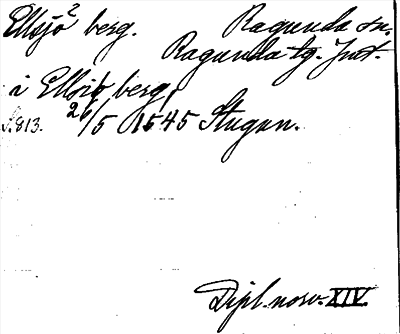 Ellsjö² berg. Ragunda sn.
Ragunda tg. Jmt.
i Ellsiö berg,
S.813. 26/5 1545 Stugun.
Dipl. norv. XIV.